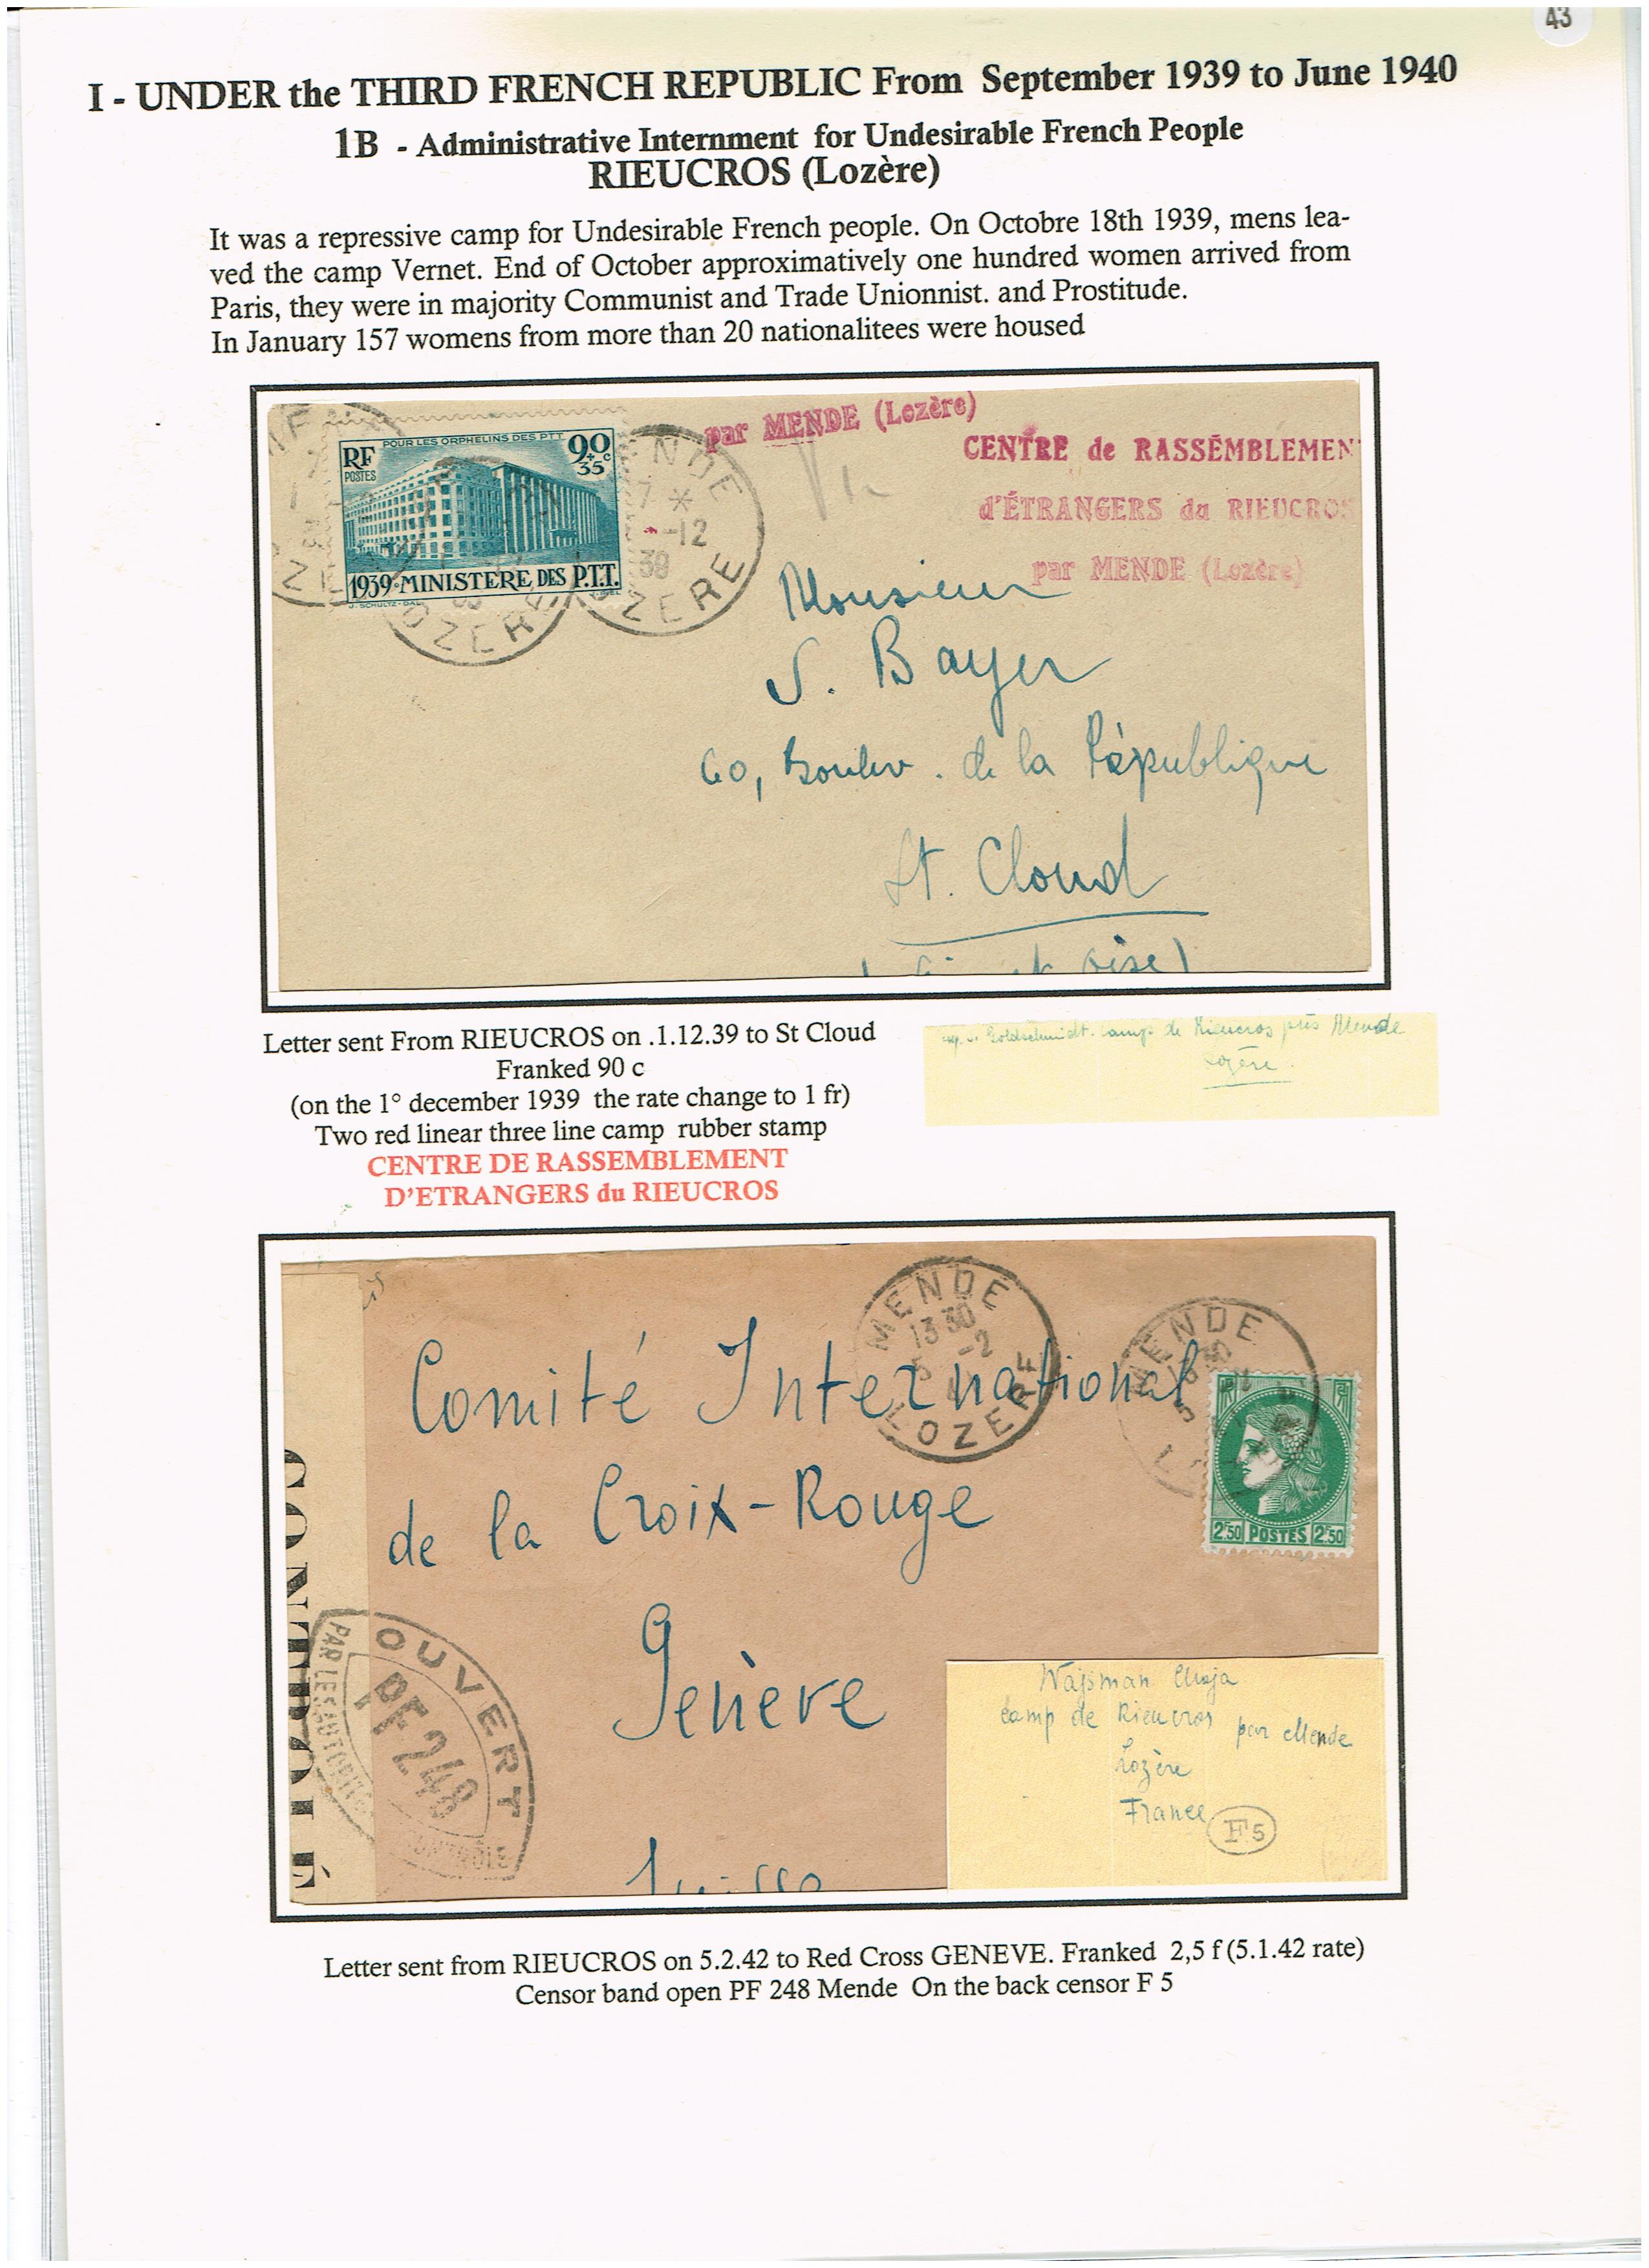 43
I - UNDER the THIRD FRENCH REPUBLIC From September 1939 to June 1940
1B - Administrative Internment for Undesirable French People
RIEUCROS (Lozère)
It was a repressive camp for Undesirable French people. On Octobre 18th 1939, mens lea-
ved the camp Vernet. End of October approximatively one hundred women arrived from
Paris, they were in majority Communist and Trade Unionnist. and Prostitude.
In January 157 womens from more than 20 nationalitees were housed
par MENDE (Lozère)
CENTRE de RASSEMBLEMEN
d'ÉTRANGERS du RIEUCROS
par MENDE (Lozère)
POUR LES ORPHELINS DES PTT
RF
POSTES
90c
+
35
1939·MINISTÈRE DES P.T.T.
ENDE
7 *
-12
39
OZERE
OZERE
Monsieur
S. Bayer
60, Boulev. de la République
St. Cloud
oise)
Letter sent From RIEUCROS on .1.12.39 to St Cloud
Franked 90 c
(on the 1° december 1939 the rate change to 1 fr)
Two red linear three line camp rubber stamp
CENTRE DE RASSEMBLEMENT
D'ETRANGERS du RIEUCROS
Goldschmidt. camp de Rieucros près Mende
Lozère.
MENDE
13 30
5 -2
LOZERE
MENDE
Comité International
de la Croix-Rouge
Genève
2F50 POSTES 2F50
OUVERT
PAR LES AUTORITÉS
PF 248
CONTRÔLE
Wajsman Chaja
camp de Rieucros par Mende
Lozère
France
F5
Letter sent from RIEUCROS on 5.2.42 to Red Cross GENEVE. Franked 2,5 f (5.1.42 rate)
Censor band open PF 248 Mende On the back censor F 5